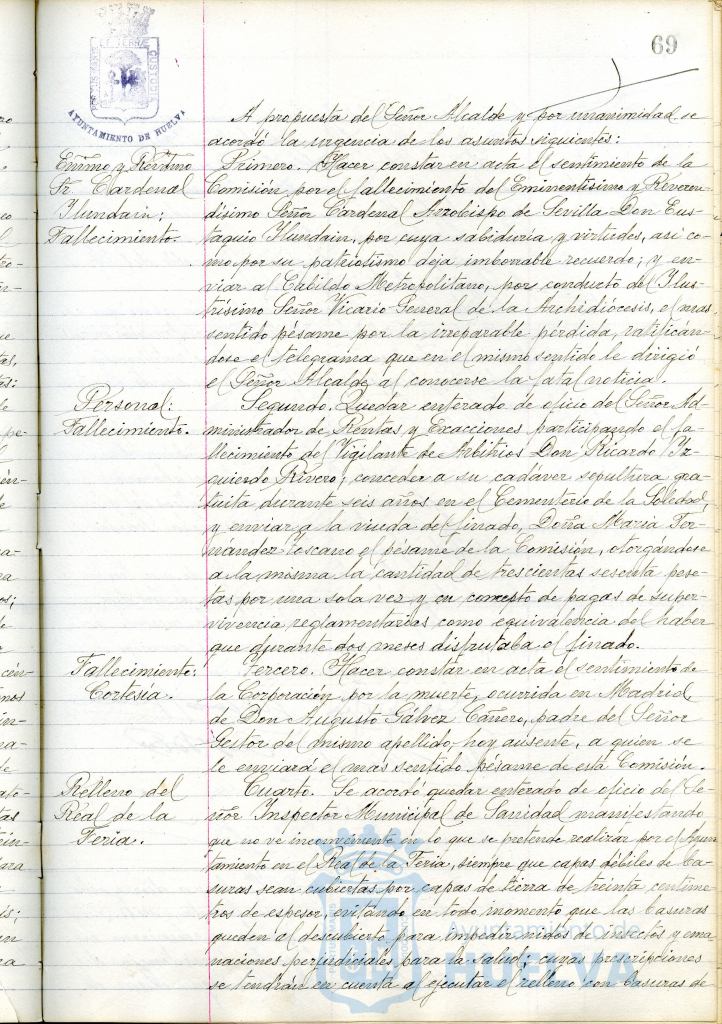 69
PORTUS MARIS ET TERRAE CUSTODIA
AYUNTAMIENTO DE HUELVA
A propuesta del Señor Alcalde y por unanimidad se
acordó la urgencia de los asuntos siguientes:
Emmo y Revdmo
Sr. Cardenal
Ilundain;
Fallecimiento.
Primero. Hacer constar en acta el sentimiento de la
Comisión por el fallecimiento del Eminentísimo y Reveren-
dísimo Señor Cardenal Arzobispo de Sevilla Don Eus-
taquio Ilundain, por cuya sabiduría y virtudes, así co-
mo por su patriotismo deja imborrable recuerdo; y en-
viar al Cabildo Metropolitano, por conducto del Ilus-
trísimo Señor Vicario General de la Archidiócesis, el mas
sentido pésame por la irreparable pérdida, ratificán-
dose el telegrama que en el mismo sentido le dirigió
el Señor Alcalde al conocerse la fatal noticia.
Personal:
Fallecimiento.
Segundo. Quedar enterado de oficio del Señor Ad-
ministrador de Rentas y Exacciones participando el fa-
llecimiento del Vigilante de Arbitrios Don Ricardo Iz-
quierdo Rivero; conceder a su cadáver sepultura gra-
tuita durante seis años en el Cementerio de la Soledad,
y enviar a la viuda del finado, Doña María Fer-
nández Toscano el pésame de la Comisión, otorgándose
a la misma la cantidad de trescientas sesenta pese-
tas por una sola vez y en concepto de pagas de super-
vivencia reglamentarias como equivalencia del haber
que durante dos meses disfrutaba el finado.
Fallecimiento:
Cortesía.
Tercero. Hacer constar en acta el sentimiento de
la Corporación por la muerte, ocurrida en Madrid,
de Don Augusto Gálvez Cañero, padre del Señor
Gestor del mismo apellido, hoy ausente, a quien se
le enviará el mas sentido pésame de esta Comisión.
Relleno del
Real de la
Feria.
Cuarto. Se acordó quedar enterado de oficio del Se-
ñor Inspector Municipal de Sanidad manifestando
que no ve inconveniente en lo que se pretende realizar por el Ayun-
tamiento en el Real de la Feria, siempre que capas débiles de ba-
suras sean cubiertas por capas de tierra de treinta centíme-
tros de espesor, evitando en todo momento que las basuras
queden al descubierto para impedir nidos de insectos y ema-
naciones perjudiciales para la salud; cuyas prescripciones
se tendrán en cuenta al ejecutar el relleno con basuras de
Ayuntamiento de
HUELVA